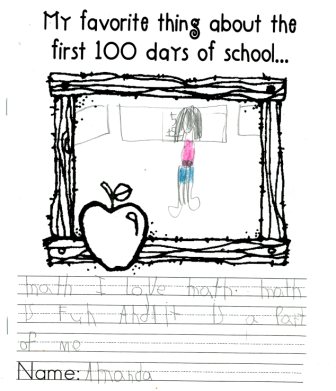 My favorite thing about the
first 100 days of school...
math I love math. math
is Fun And it is a Part
of me
Name: Amanda